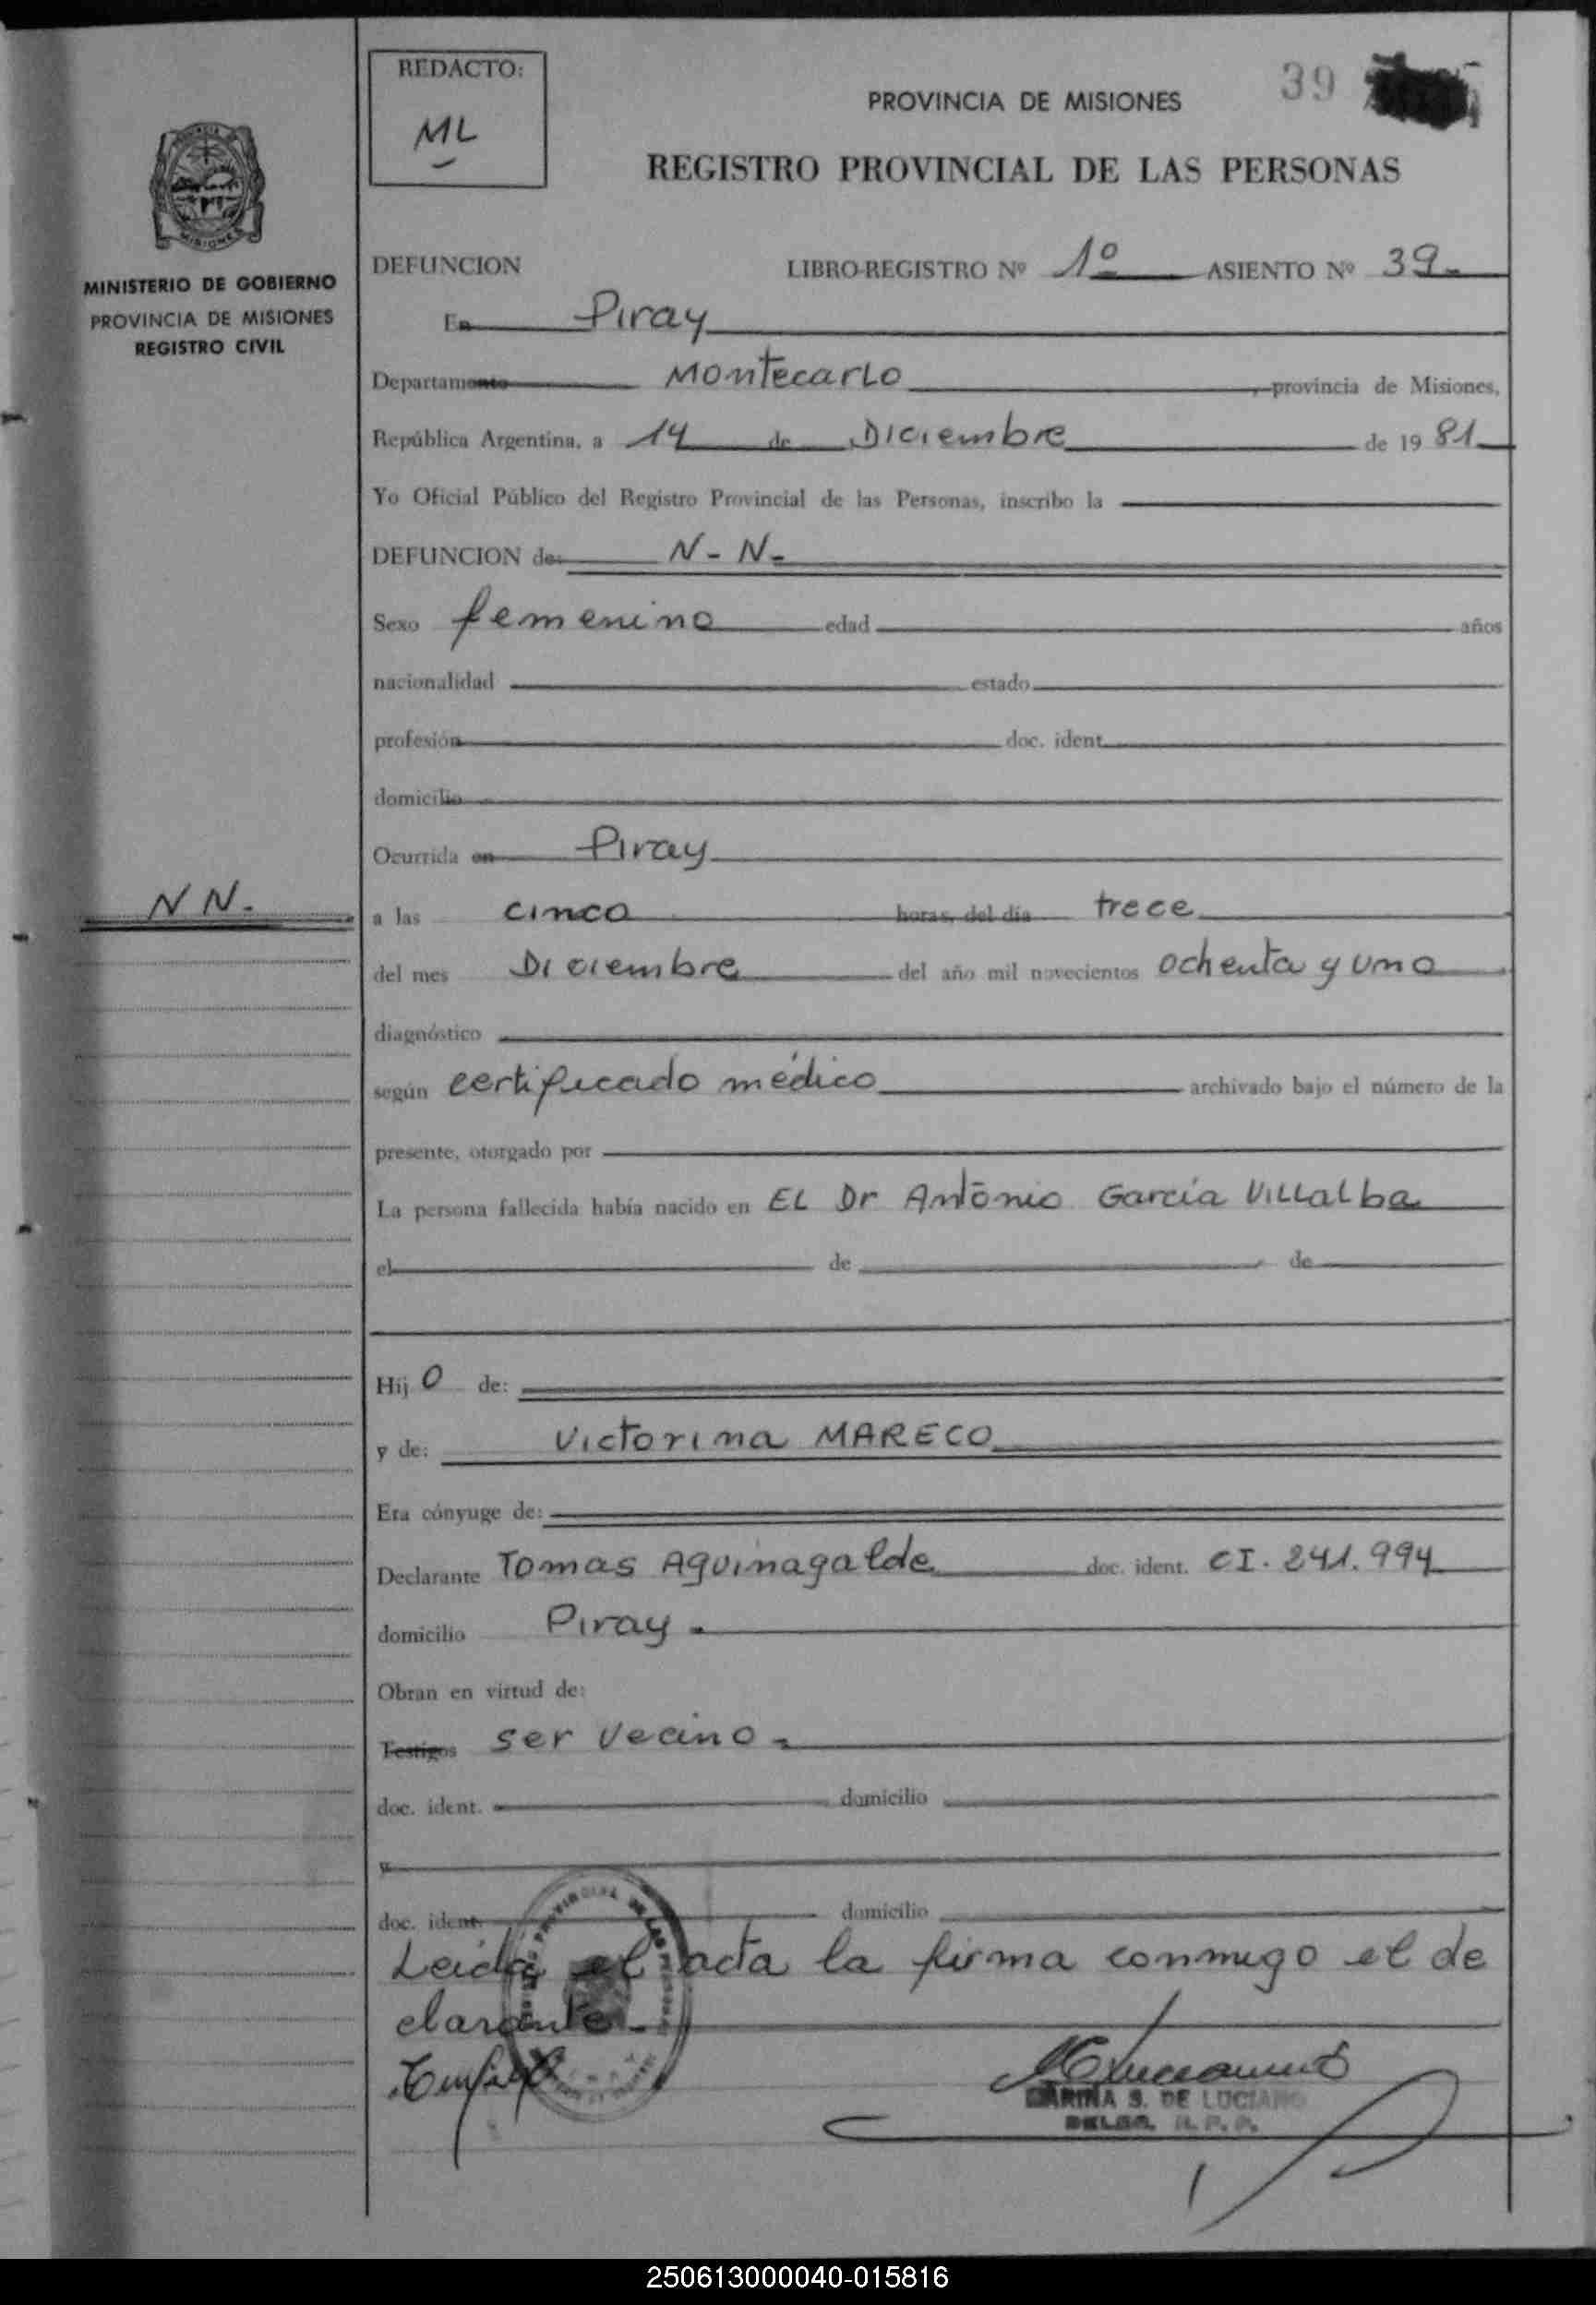 REDACTO:
ML
39
PROVINCIA DE MISIONES
REGISTRO PROVINCIAL DE LAS PERSONAS
MISIONES
MINISTERIO DE GOBIERNO
PROVINCIA DE MISIONES
REGISTRO CIVIL
DEFUNCION LIBRO-REGISTRO Nº 1º ASIENTO Nº 39
En Piray
Departamento Montecarlo, provincia de Misiones,
República Argentina, a 14 de Diciembre de 1981
Yo Oficial Público del Registro Provincial de las Personas, inscribo la
DEFUNCION de: N-N-
Sexo femenino edad años
nacionalidad estado
profesión doc. ident.
domicilio
Ocurrida en Piray
NN.
a las cinco horas, del día trece
del mes Diciembre del año mil novecientos ochenta y uno
diagnóstico
según certificado médico archivado bajo el número de la
presente, otorgado por
La persona fallecida había nacido en EL Dr Antonio García VILLalba
el de de
Hij O de:
y de: Victorina MARECO
Era cónyuge de:
Declarante Tomas Aguinagalde doc. ident. CI. 241.994
domicilio Piray.
Obran en virtud de:
Testigos ser vecino
doc. ident. domicilio
y
doc. ident. domicilio
Leida el acta la firma conmigo el de
clarante
MARINA S. DE LUCIANO
DELEG. R. P. P.
250613000040-015816